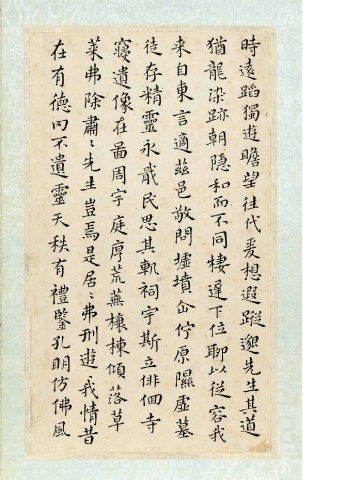 時遠蹈獨遊瞻望往代爰想遐蹤邈先生其道
猶龍染跡朝隱和而不同棲遲下位聊以從容我
来自東言適茲邑敬問墟墳企佇原隰虛墓
徒存精靈永戢民思其軌祠宇斯立俳佪寺
寢遺像在圖周宇庭序荒蕪榱棟傾落草
萊弗除肅〻先生豈焉是居〻弗刑遊〻我情昔
在有德罔不遺靈天秩有禮鑒孔明仿佛風